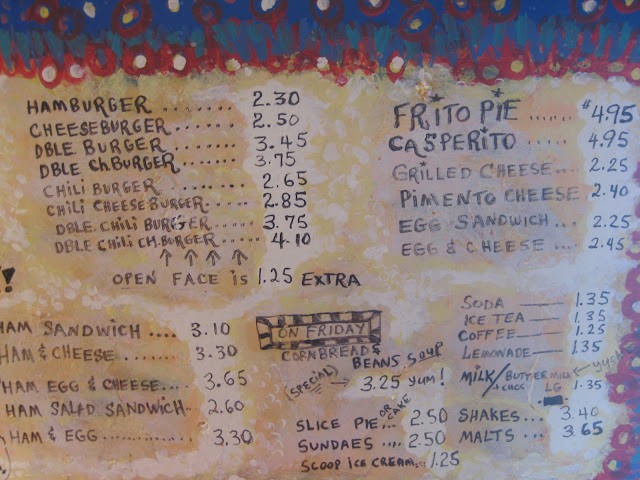 HAMBURGER ........ 2.30
CHEESEBURGER ....... 2.50
DBLE BURGER ...... 3.45
DBLE Ch.BURGER .... 3.75
CHILI BURGER ........ 2.65
CHILI CHEESE BURGER .... 2.85
DBLE. CHILI BURGER .... 3.75
DBLE CHILI CH.BURGER .... 4.10
OPEN FACE is 1.25 EXTRA
FRITO PIE ...... $4.95
CASPERITO ..... 4.95
GRILLED CHEESE.... 2.25
PIMENTO CHEESE . 2.40
EGG SANDWICH .... 2.25
EGG & CHEESE .... 2.45
!
HAM SANDWICH .... 3.10
HAM & CHEESE ....... 3.30
HAM EGG & CHEESE.... 3.65
HAM SALAD SANDWICH.. 2.60
HAM & EGG .......... 3.30
ON FRIDAY
CORNBREAD &
BEANS, SOUP
(SPECIAL) 3.25 yum!
SLICE PIE OR CAKE ... 2.50
SUNDAES .... 2.50
SCOOP ICE CREAM... 1.25
SODA 1.35
ICE TEA 1.35
COFFEE 1.25
LEMONADE 1.35
MILK/BUTTERMILK
LG 1.35
SHAKES... 3.40
MALTS ... 3.65